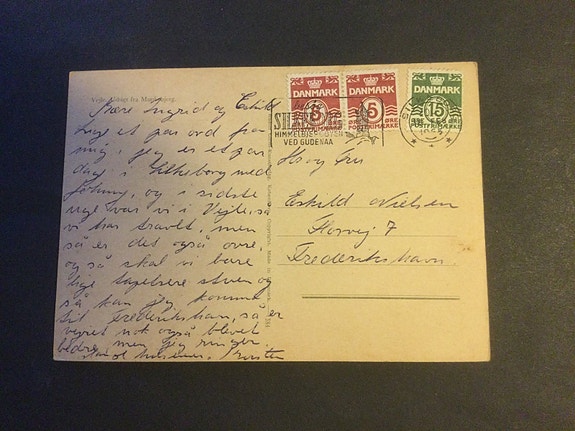 Vejle. Udsigt fra Munkebjerg.
Kære Ingrid og Eskild
kun et par ord fra
mig, jeg er et par
dag i Silkeborg med
og i sidste
uge var vi i Vejle, så
vi har travlt, men
så er det også ovre,
og så skal vi bare
lige tapetsere stuen og
så kan jeg komme
til Frederikshavn, så er
vejret nok også blevet
bedre, men jeg ringer.
hilsen,
DANMARK
5
ØRE
POSTFRIMÆRKE
DANMARK
5
ØRE
POSTFRIMÆRKE
DANMARK
15
ØRE
HIMMELBJERGBYEN
VED GUDENAA
Hr og fru
Eskild Nielsen
7
Frederikshavn